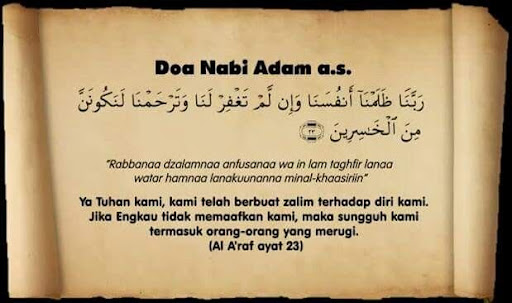 Doa Nabi Adam a.s.
رَبَّنَا ظَلَمْنَآ أَنفُسَنَا وَإِن لَّمْ تَغْفِرْ لَنَا وَتَرْحَمْنَا لَنَكُونَنَّ
مِنَ الْخَٰسِرِينَ ٢٣
"Rabbanaa dzalamnaa anfusanaa wa in lam taghfir lanaa
watar hamnaa lanakuunanna minal-khaasiriin"
Ya Tuhan kami, kami telah berbuat zalim terhadap diri kami.
Jika Engkau tidak memaafkan kami, maka sungguh kami
termasuk orang-orang yang merugi.
(Al A'raf ayat 23)